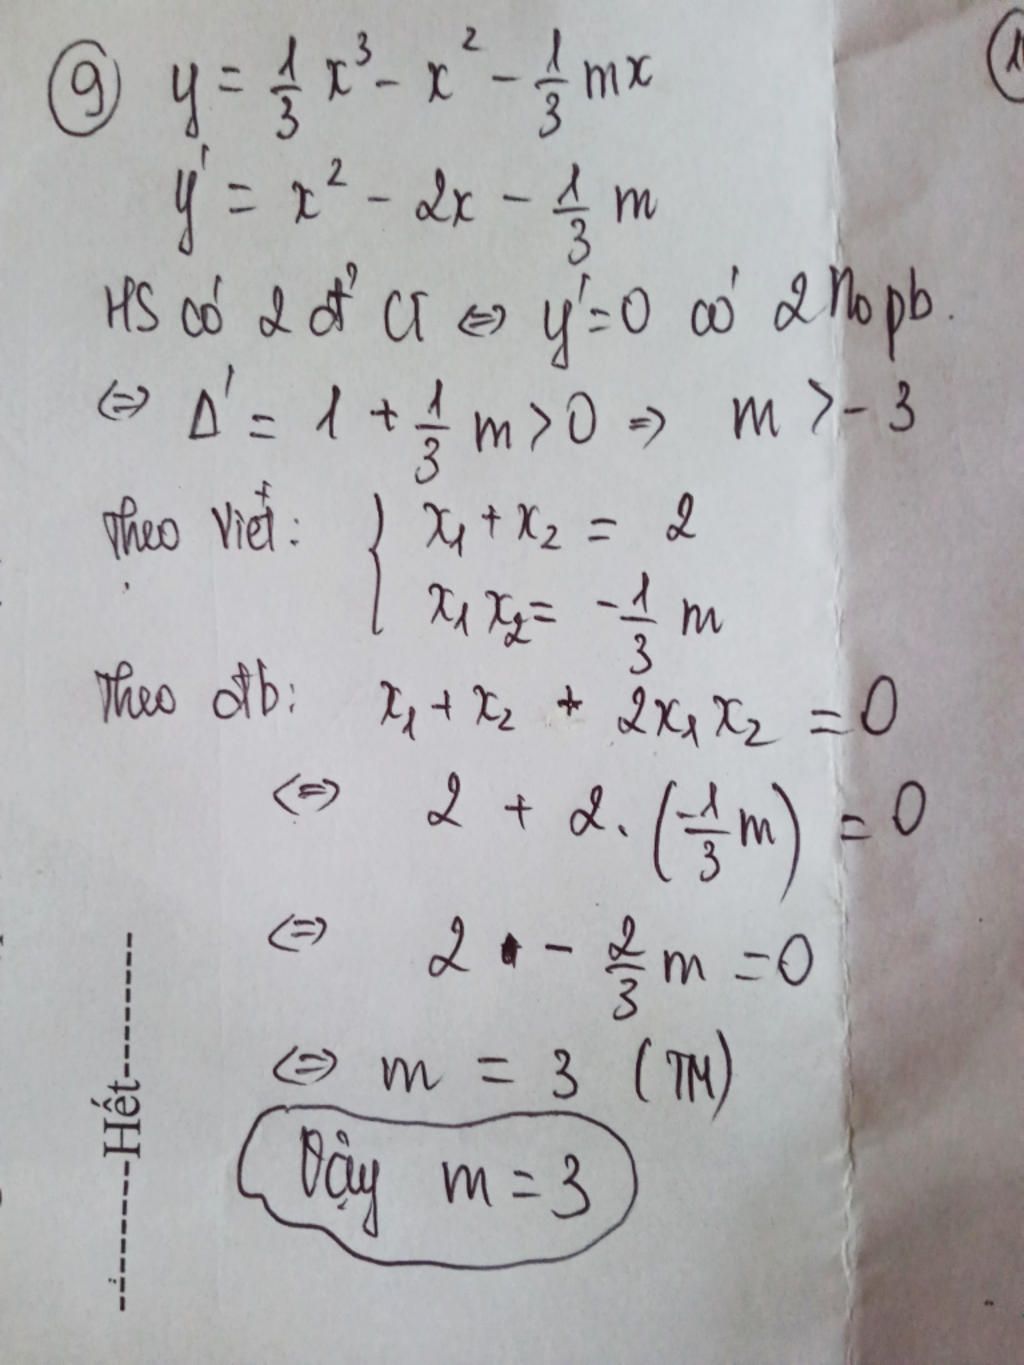 9 y = 1/3 x³ - x² - 1/3 mx
y' = x² - 2x - 1/3 m
HS có 2 đ' CT ⇔ y'=0 có 2 no pb.
⇔ Δ' = 1 + 1/3 m > 0 ⇒ m > -3
Theo Viét: { x₁ + x₂ = 2
x₁ x₂ = -1/3 m
Theo đb: x₁ + x₂ + 2x₁ x₂ = 0
⇔ 2 + 2. (-1/3 m) = 0
⇔ 2 - 2/3 m = 0
⇔ m = 3 (TM)
Vậy m = 3
----------Hết----------